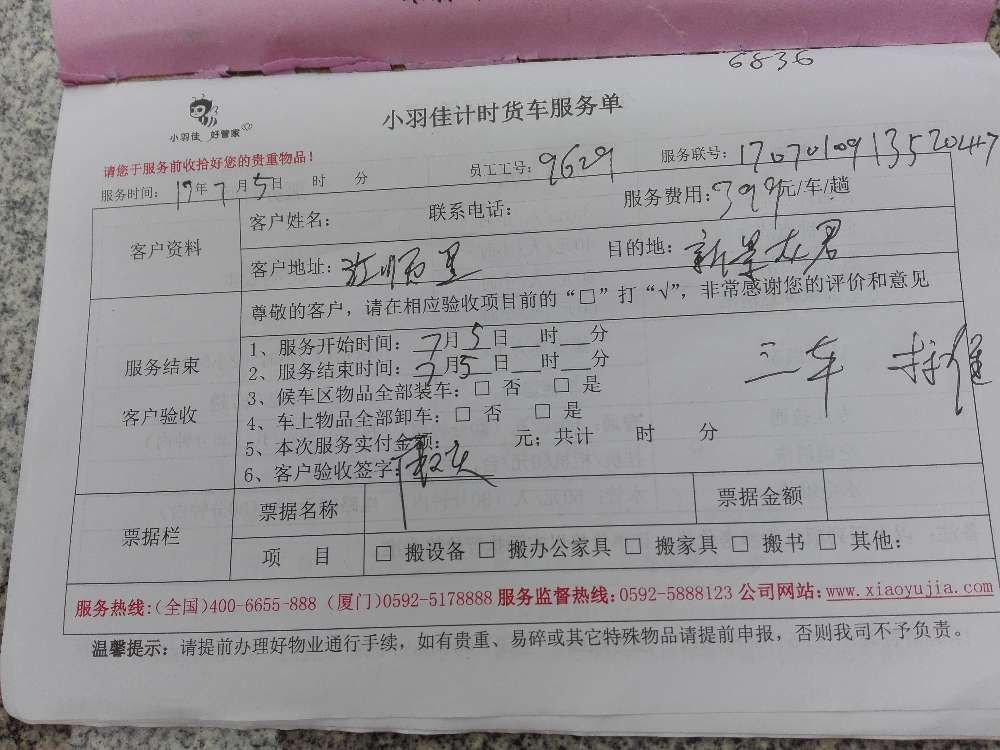 6836
小羽佳 好管家
小羽佳计时货车服务单
请您于服务前收拾好您的贵重物品！
服务时间：17年7月5日 时 分 员工工号：9629 服务联号：1707010913520447
客户资料
客户姓名： 联系电话： 服务费用：399元/车/趟
客户地址： 里 目的地：新景
服务结束
客户验收
尊敬的客户，请在相应验收项目前的“□”打“√”，非常感谢您的评价和意见
1、服务开始时间：7月5日__时__分
2、服务结束时间：7月5日__时__分
3、候车区物品全部装车：□ 否 □ 是
4、车上物品全部卸车：□ 否 □ 是
5、本次服务实付金额： 元；共计 时 分
6、客户验收签字：
三车
票据栏
票据名称 票据金额
项 目 □ 搬设备 □ 搬办公家具 □ 搬家具 □ 搬书 □ 其他：
服务热线：(全国)400-6655-888 (厦门)0592-5178888 服务监督热线：0592-5888123 公司网站：www.xiaoyujia.com
温馨提示：请提前办理好物业通行手续，如有贵重、易碎或其它特殊物品请提前申报，否则我司不予负责。